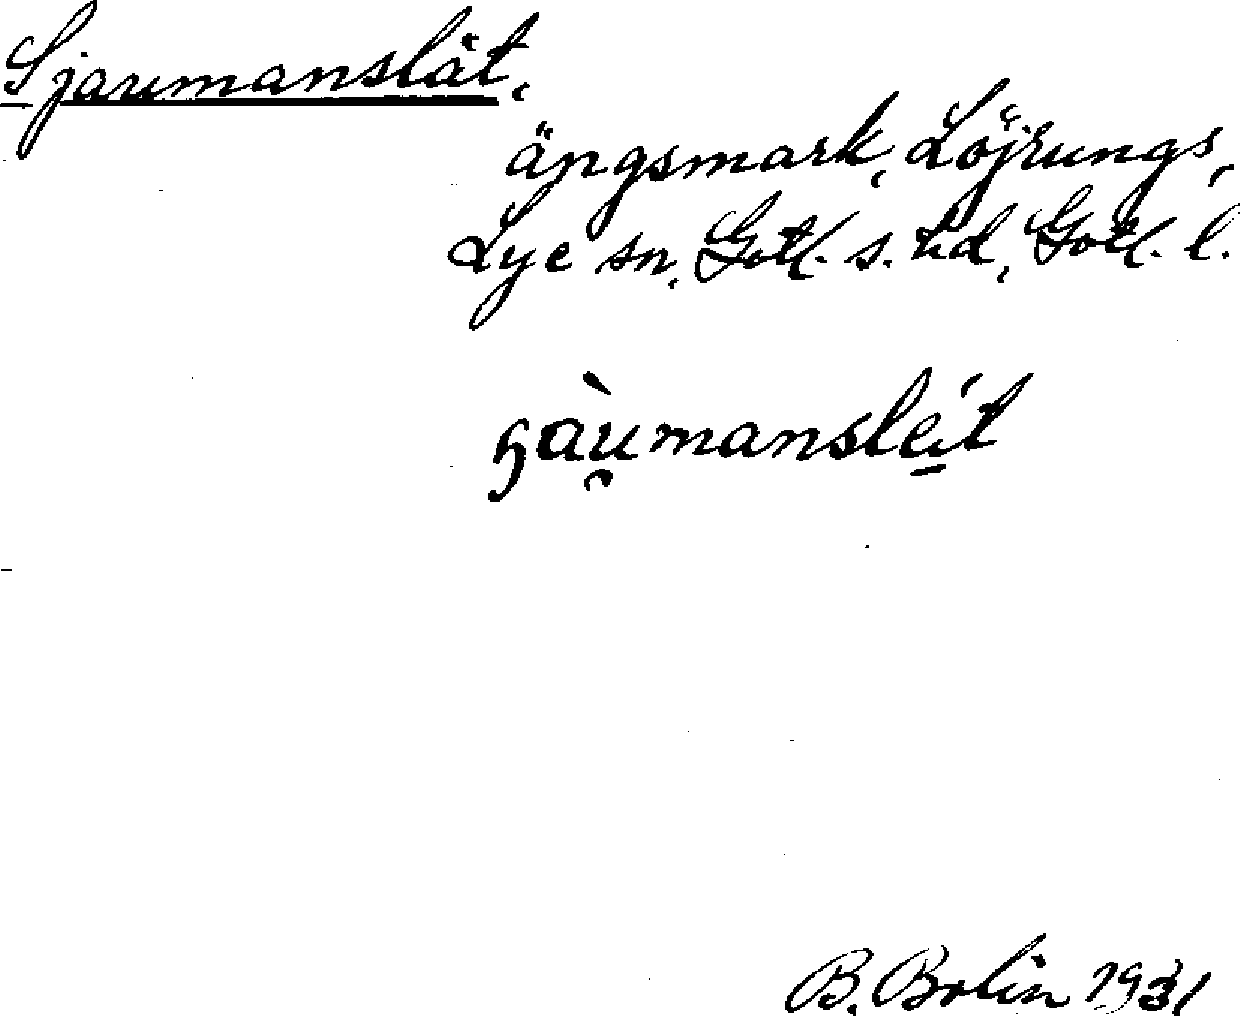 Sjaumanslät,
ängsmark, Löjrungs,
Lye sn, Gotl. s. hd, Gotl. l.
ɧàu̯manslét
B. Bolin 1931